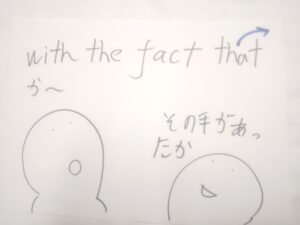 with the fact that
か〜
その手があっ
たか